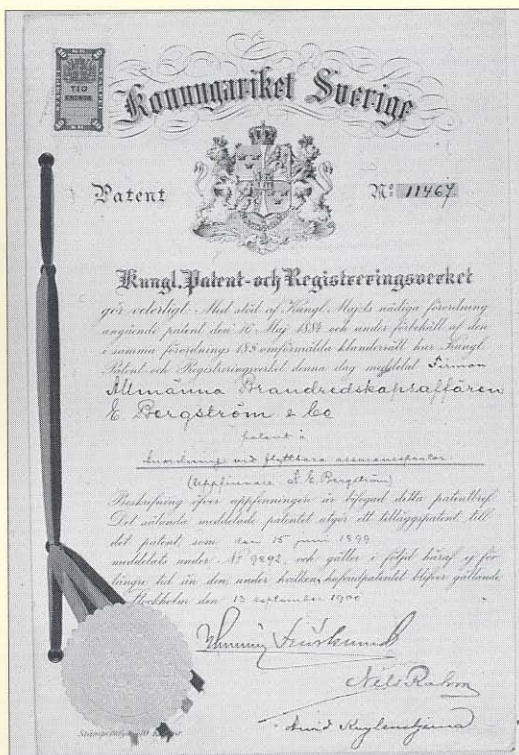 TIO
KRONOR
Konungariket Sverige
Patent
No 11467
Kungl. Patent- och Registreringsverket
gör veterligt: Med stöd af Kungl. Maj:ts nådiga förordning
angående patent den 16 Maj 1884 och under förbehåll af den
i samma förordnings 18 § omförmälda klanderrätt har Kungl.
Patent- och Registreringsverket denna dag meddelat Firman
Allmänna Brandredskapsaffären
E. Bergström & Co
patent å
Anordning vid flyttbara
(Uppfinnare: E. Bergström)
Beskrifning öfver uppfinningen är bifogad detta patentbref.
Det sålunda meddelade patentet utgör ett tilläggspatent till
det patent, som den 15 juni 1899
meddelats under No 9892, och gäller i följd häraf ej för
längre tid än den, under hvilken hufvudpatentet blifver gällande.
Stockholm den 13 september 1900
Nils Rahm
Arvid Kuylenstjerna